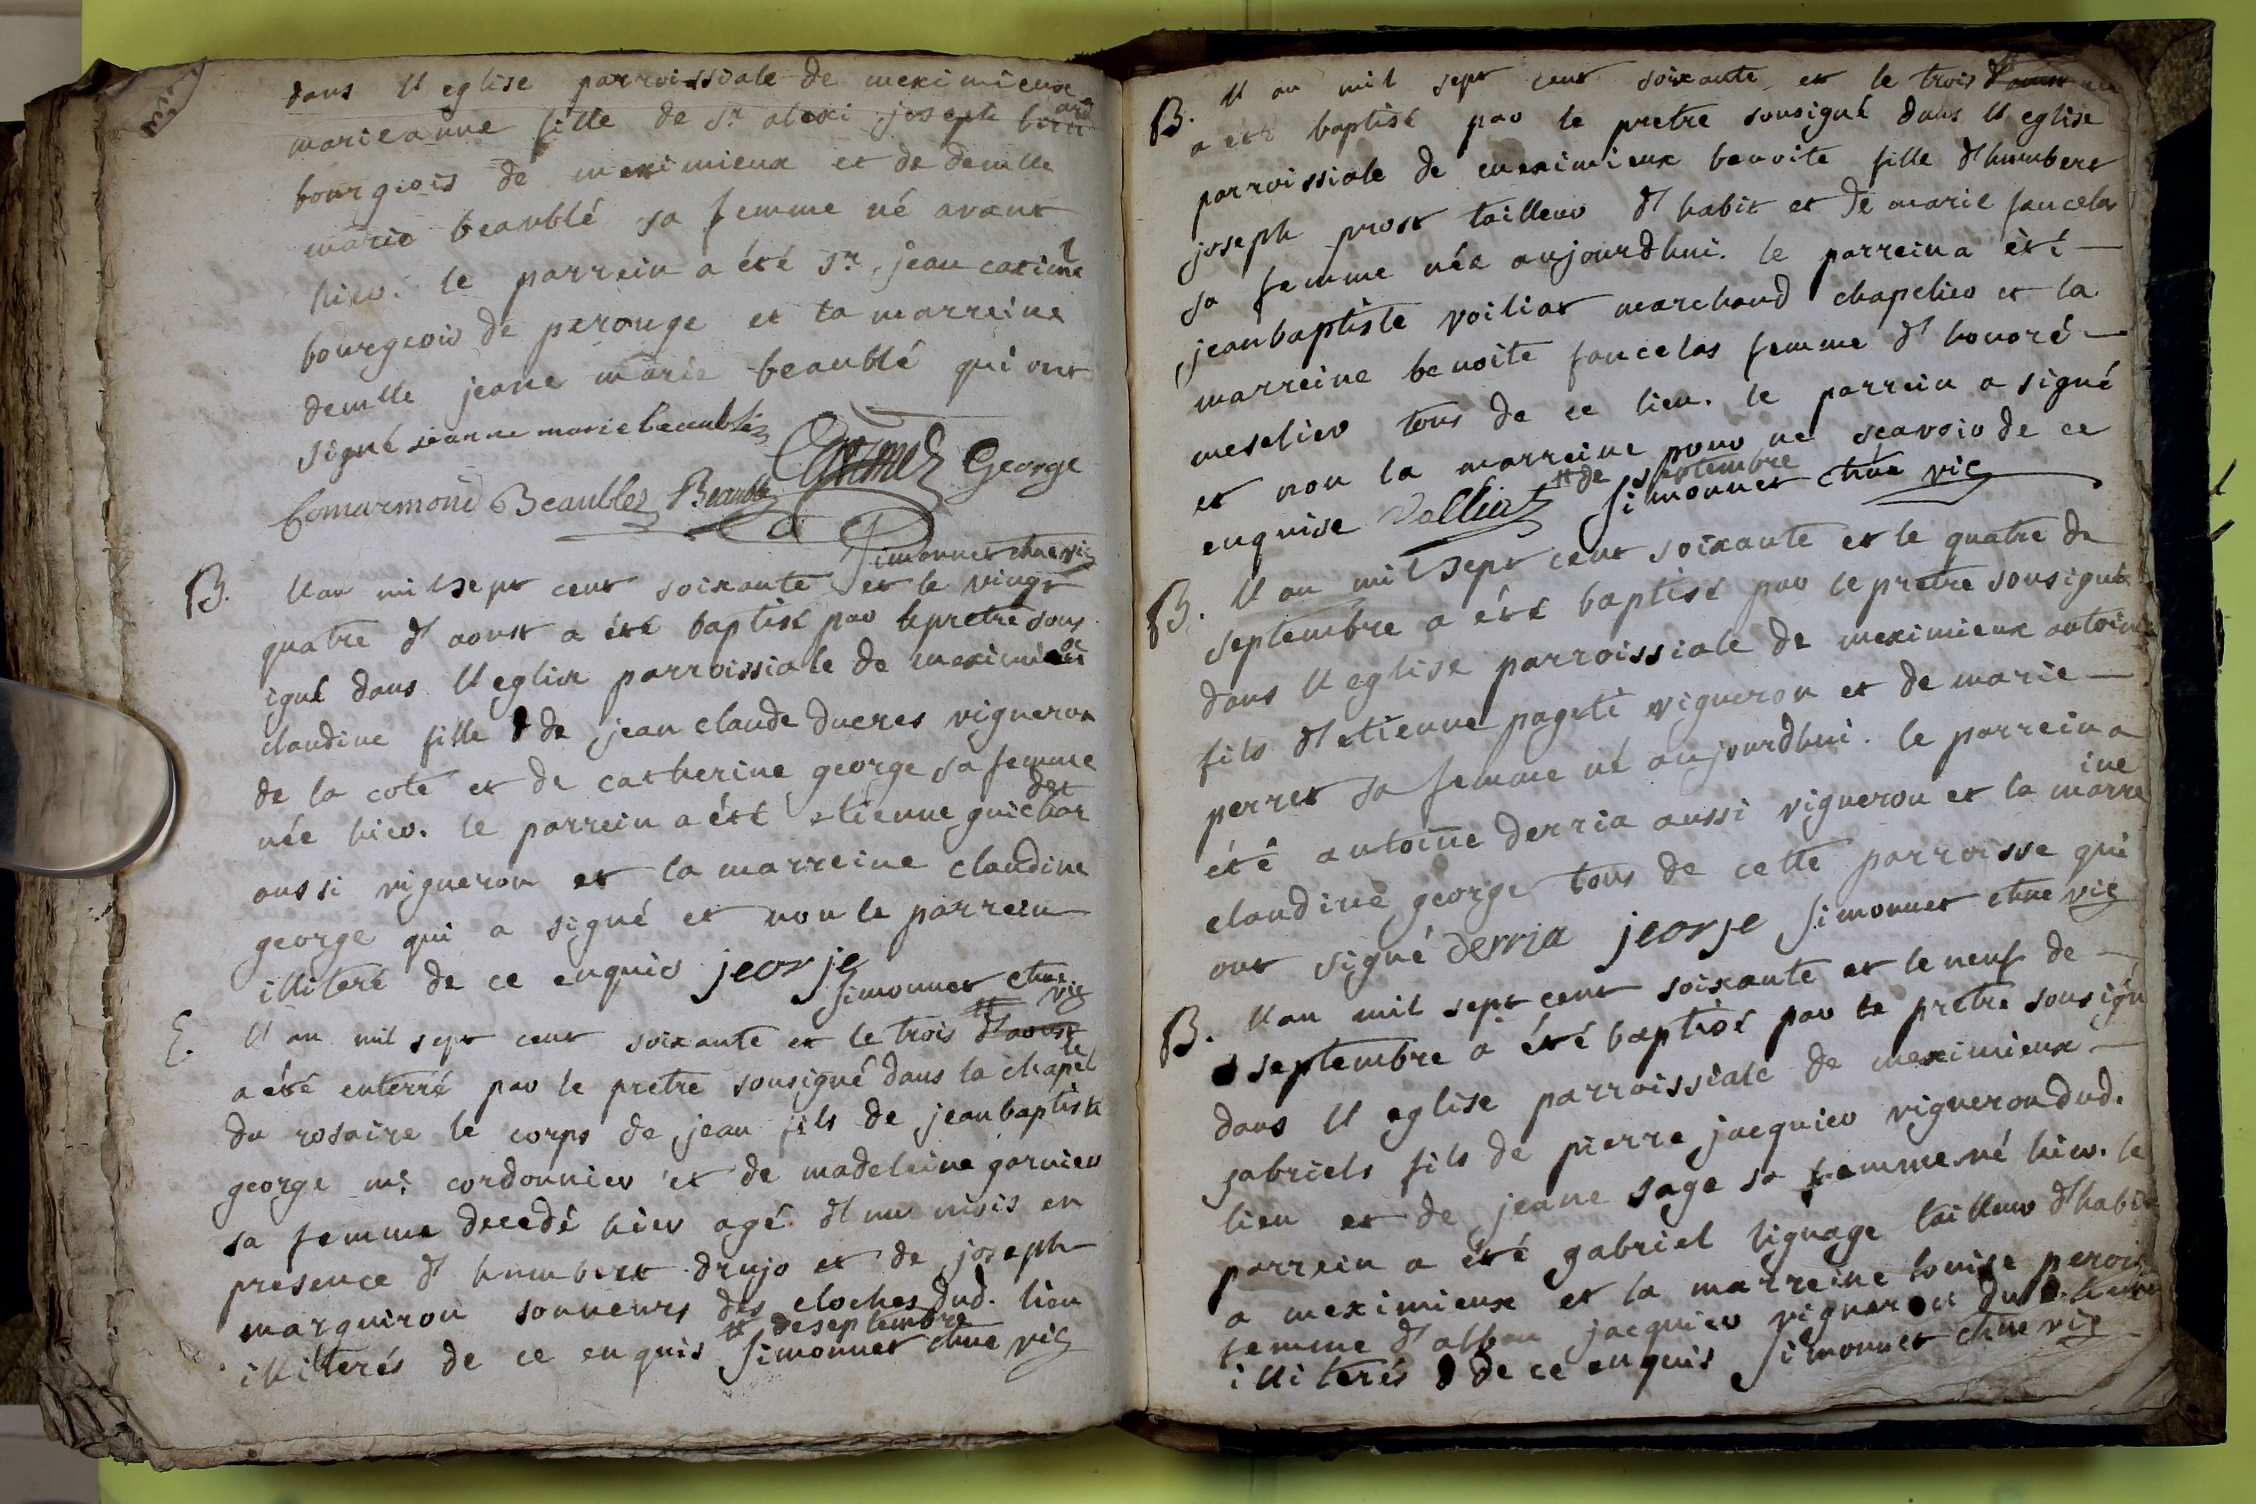 dans ll eglise parroissiale de meximieux
marieanne fille de Sr. alexi joseph
bourgeois de meximieux et de demlle
marie beaublé sa femme né avant
hier. le parrein a été Sr. jean
bourgeois de perouge et la marreine
demlle jeane marie beaublé qui ont
signé jeanne marie beaublé
Comarmond Beaublez Beaublé George
Simonnet chne vic
B. ll an mil sept cent soixante et le vingt
quatre d aoust a été baptisé par le pretre sous
igné dans ll eglise parroissiale de meximieux
claudine fille de jean claude ducres vigneron
de la cote et de catherine george sa femme
née hier. le parrein a été etienne guichar
det
aussi vigneron et la marreine claudine
george qui a signé et non le parrein
illiteré de ce enquis jeorje
Simonnet chne vic
E. ll an mil sept cent soixante et le trois d'aoust
a été enterré par le pretre sousigné dans la chapel
le
du rosaire le corps de jean fils de jeanbaptiste
george mr. cordonnier et de madeleine garnier
sa femme decedé hier agé d un mois en
presence d humbert drujo et de joseph
marguiron sonneurs des cloches dud. lieu
# de septembre
illiterés de ce enquis Simonnet chne vic
B. ll an mil sept cent soixante et le trois d'aoust
a été baptisé par le pretre sousigné dans ll eglise
parroissiale de meximieux benoite fille d humbert
joseph prost tailleur d habit et de marie fancelas
sa femme née aujourdhui. le parrein a été
jeanbaptiste voiliat marchand chapelier et la
marreine benoite fancelas femme d honoré
meselier tous de ce lieu. le parrein a signé
et non la marreine pour ne sçavoir de ce
# de septembre
enquise Volliat Simonnet chne vic
B. ll an mil sept cent soixante et le quatre de
septembre a été baptisé par le pretre sousigné
dans ll eglise parroissiale de meximieux antoine
fils d etienne pageti vigneron et de marie
perret sa femme né aujourdhui. le parrein a
été antoine derria aussi vigneron et la marre
ine
claudine george tous de cette parroisse qui
ont signé derria jeorje Simonnet chne vic
B. ll an mil sept cent soixante et le neuf de
septembre a été baptisé par le pretre sousigné
dans ll eglise parroissiale de meximieux
gabriels fils de pierre jacquier vigneron dud.
lieu et de jeane sage sa femme né hier. le
parrein a été gabriel lignage tailleur d habit
a meximieux et la marreine louise
femme d alban jacquier vigneron dud. lieu
illiterés de ce enquis Simonnet chne vic